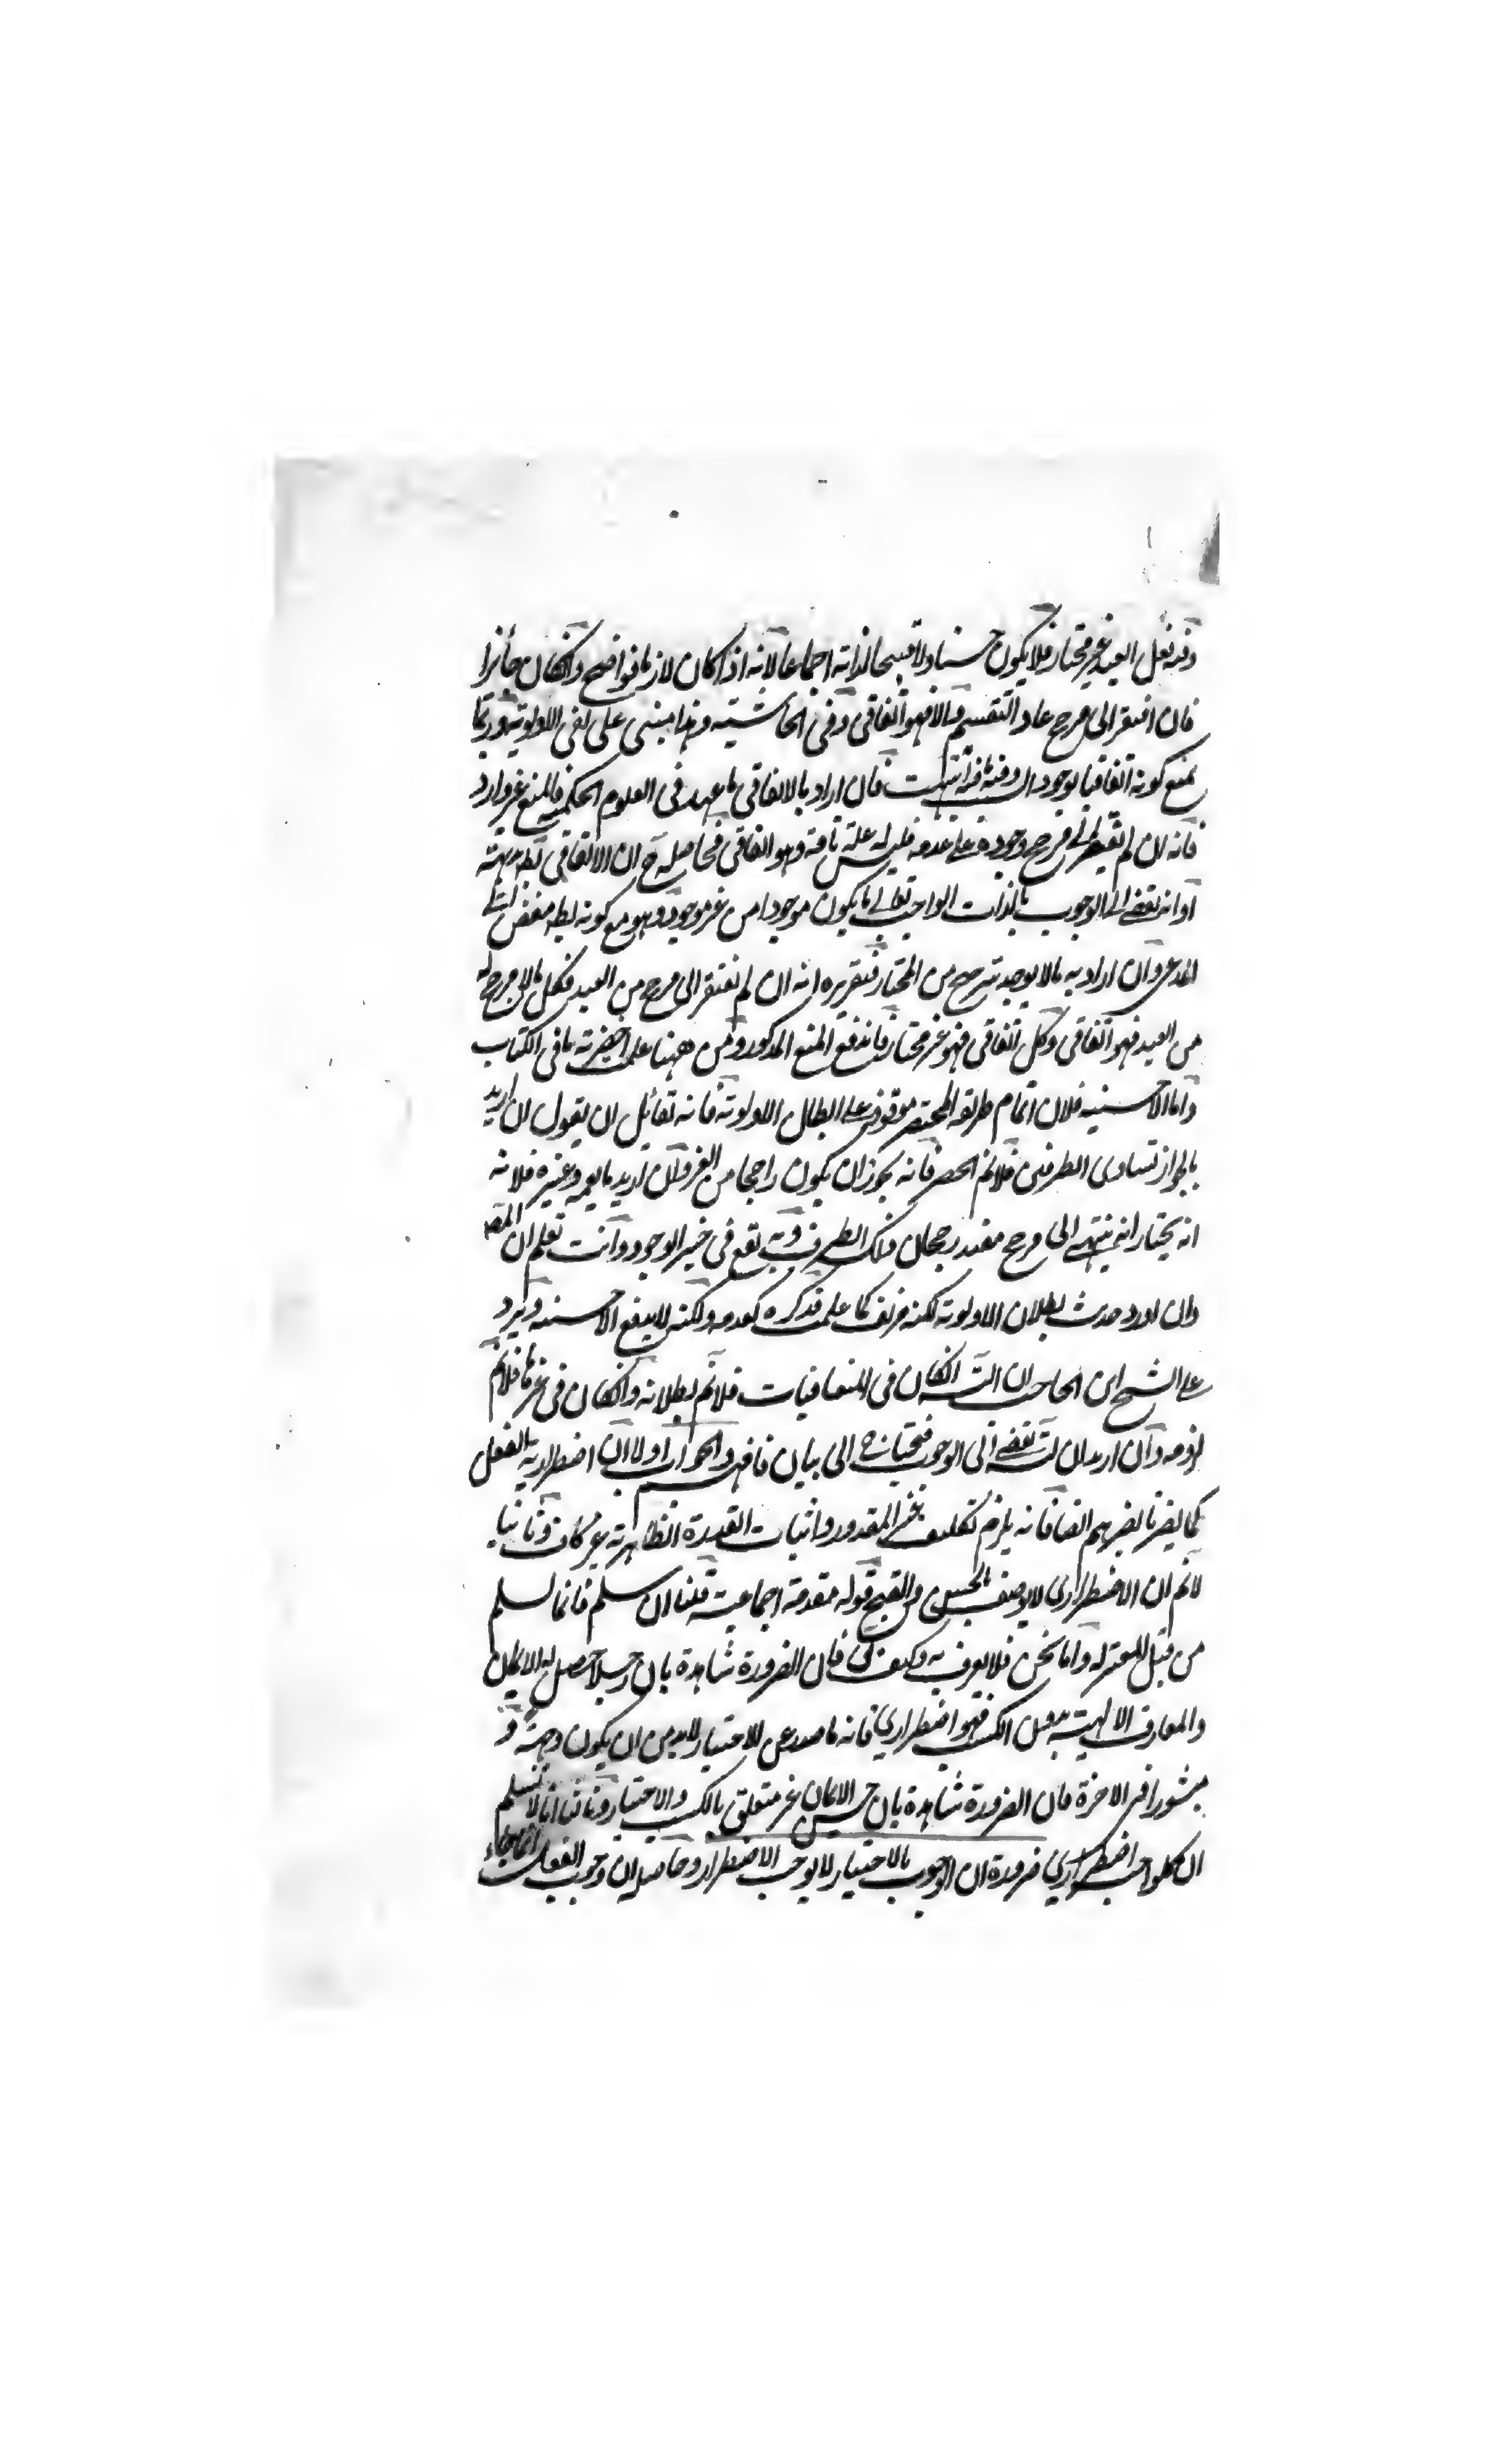 وفيه فعل العبد غير مختار فلا يكون حسنا ولا قبيحا لذاته اجماعا لانه اذا كان لازما فواضح وانكان جائزا
فان افتقر الى مرجح عاد التقسيم والا فهو اتفاقى وفى الحاشية وهذا مبنى على نفى الاولوية وربما
يمنع كونه اتفاقيا لوجود السبب انتهت فان اراد بالاتفاقى ما عهد فى العلوم الحكمية فالمنع غير وارد
فانه ان لم يفتقر الى مرجح وجوده على عدمه فليس له علة تامة وهو اتفاقى فحاصله ح ان الاتفاقى
او انه يفضى الى الوجوب بالذات الواجب تعالى ما يكون موجودا من غير موجود وهو مع كونه
المدعى وان اراد به ما لا يوجد بترجيح من المختار فتقريره انه ان لم يفتقر الى مرجح من العبد فكل ما لا مرجح له
من العبد فهو اتفاقى وكل اتفاقى فهو غير مختار فاندفع المنع المذكور ومن ههنا علمت ما فى الكتاب
واما الاحسنية فلان اتمام طريقة المختصر موقوف على ابطال الاولوية فانه لقائل ان يقول ان اريد
بالجواز تساوى الطرفين فلانم الحصر فانه يجوز ان يكون راجحا من الغير وان اريد ما يعمه وغيره فلانه
انه يختار انه ينتهى الى مرجح مفيد رجحان ذلك الطرف وبه يقع فى حيز الوجود وانت تعلم ان المص
وان اورد حديث بطلان الاولوية لكنه مزيف كما علمت فذكره كعدمه ولكنه لا يدفع الاحسنية ويرد
على الشيخ ابن الحاجب ان التسلسل انكان فى المتعاقبات فلانم بطلانه وانكان فى غيرها فلانم
لزومه وان اريد ان يفضى الى الوجوب فيحتاج الى بيان فافهم والجواب اولا ان اضطرارية الفعل
كما يضرنا يضرهم ايضا فانه يلزم تكليف غير المقدور واثبات القدرة الظاهرية غير كاف وثانيا
لانم ان الاضطرارى لا يوصف بالحسن والقبح قوله مقدمة اجماعية قلنا ان سلم فانما سلم
من قبل المعتزلة واما نحن فلا يعرف به وكيف فان الضرورة شاهدة بان رجلا حصل له الايمان
والمعارف الالهية بدون الكسب فهو اضطرارى فانه ما صدر عن الاختيار لابد من ان يكون
مبشورا فى الاخرة فان الضرورة شاهدة بان حسن الايمان غير متعلق بالكسب والاختيار وثالثا انا لا نسلم
ان كل واجب اضطرارى ضرورة ان الوجوب بالاختيار لا يوجب الاضطرار وحاصله ان وجوب الفعل انما جاء